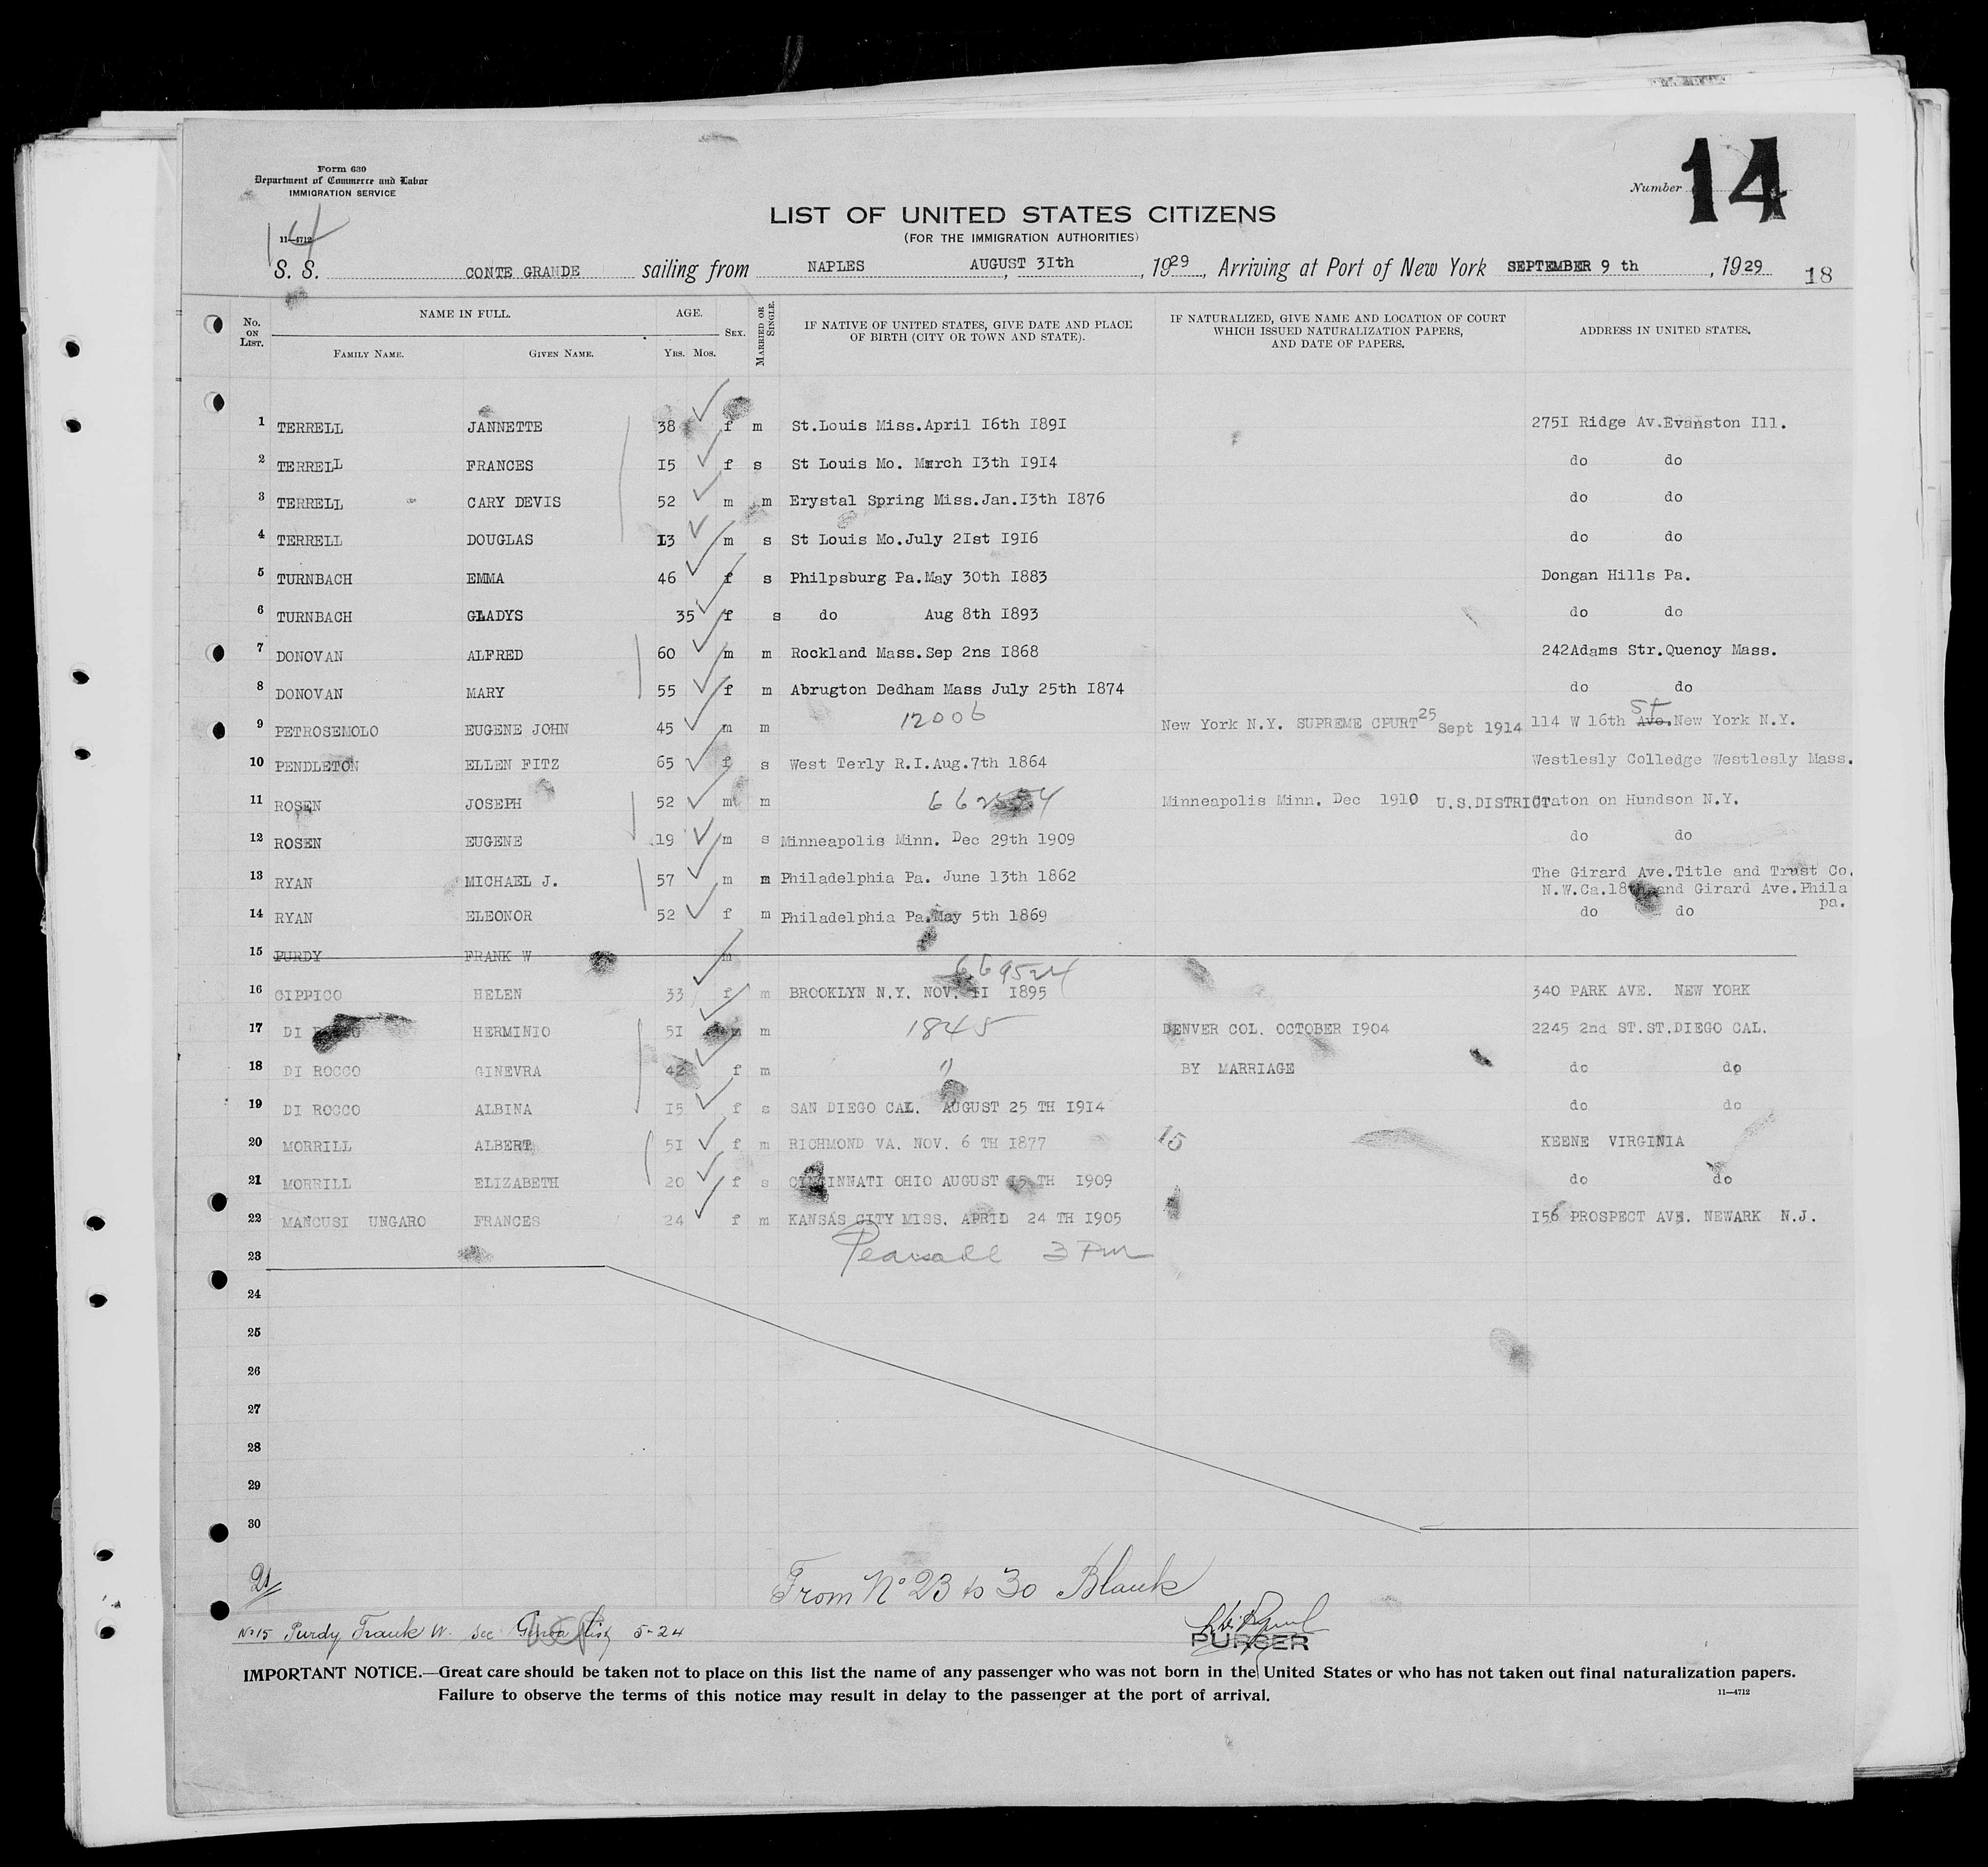 Form 630
Department of Commerce and Labor
IMMIGRATION SERVICE
Number 14
14
11—4712
LIST OF UNITED STATES CITIZENS
(FOR THE IMMIGRATION AUTHORITIES)
S. S. CONTE GRANDE sailing from NAPLES, AUGUST 3Ith, 1929, Arriving at Port of New York SEPTEMBER 9 th, 1929 18
No. ON LIST. NAME IN FULL. FAMILY NAME. GIVEN NAME. AGE. YRS. MOS. SEX. MARRIED OR SINGLE. IF NATIVE OF UNITED STATES, GIVE DATE AND PLACE OF BIRTH (CITY OR TOWN AND STATE). IF NATURALIZED, GIVE NAME AND LOCATION OF COURT WHICH ISSUED NATURALIZATION PAPERS, AND DATE OF PAPERS. ADDRESS IN UNITED STATES.
1 TERRELL JANNETTE 38 f m St.Louis Miss.April I6th I89I 275I Ridge Av.Evanston Ill.
2 TERRELL FRANCES I5 f s St Louis Mo. March I3th I914 do do
3 TERRELL CARY DEVIS 52 m m Erystal Spring Miss.Jan.I3th I876 do do
4 TERRELL DOUGLAS I3 m s St Louis Mo.July 2Ist I916 do do
5 TURNBACH EMMA 46 f s Philpsburg Pa.May 30th I883 Dongan Hills Pa.
6 TURNBACH GLADYS 35 f s do Aug 8th I893 do do
7 DONOVAN ALFRED 60 m m Rockland Mass.Sep 2ns I868 242Adams Str.Quency Mass.
8 DONOVAN MARY 55 f m Abrugton Dedham Mass July 25th I874 do do
9 PETROSEMOLO EUGENE JOHN 45 m m 12006 New York N.Y. SUPREME CPURT 25 Sept 1914 114 W 16th Ave. St New York N.Y.
10 PENDLETON ELLEN FITZ 65 f s West Terly R.I.Aug.7th 1864 Westlesly Colledge Westlesly Mass.
11 ROSEN JOSEPH 52 m m Minneapolis Minn. Dec 1910 U.S.DISTRICT Craton on Hundson N.Y.
12 ROSEN EUGENE 19 m s Minneapolis Minn. Dec 29th 1909 do do
13 RYAN MICHAEL J. 57 m m Philadelphia Pa. June 13th 1862 The Girard Ave.Title and Trust Co.
N.W.Ca.18th and Girard Ave.Phila pa.
14 RYAN ELEONOR 52 f m Philadelphia Pa.May 5th 1869 do do
15 PURDY FRANK W m
669524
16 CIPPICO HELEN 33 f m BROOKLYN N.Y. NOV. II I895 340 PARK AVE. NEW YORK
17 DI ROCCO HERMINIO 5I m m 1845 DENVER COL. OCTOBER I904 2245 2nd ST.ST.DIEGO CAL.
18 DI ROCCO GINEVRA 42 f m " BY MARRIAGE do do
19 DI ROCCO ALBINA I5 f s SAN DIEGO CAL. AUGUST 25 TH I9I4 do do
20 MORRILL ALBERT 5I f m RICHMOND VA. NOV. 6 TH I877 15 KEENE VIRGINIA
21 MORRILL ELIZABETH 20 f s CINCINNATI OHIO AUGUST I5 TH I909 do do
22 MANCUSI UNGARO FRANCES 24 f m KANSAS CITY MISS. APRID 24 TH I905 I56 PROSPECT AVE. NEWARK N.J.
23 Pearsall 3 Pm
24
25
26
27
28
29
30
21
From No 23 to 30 Blank
No 15 Purdy, Frank W. see Genoa list 5-24
PURSER
IMPORTANT NOTICE.—Great care should be taken not to place on this list the name of any passenger who was not born in the United States or who has not taken out final naturalization papers.
Failure to observe the terms of this notice may result in delay to the passenger at the port of arrival.
11—4712